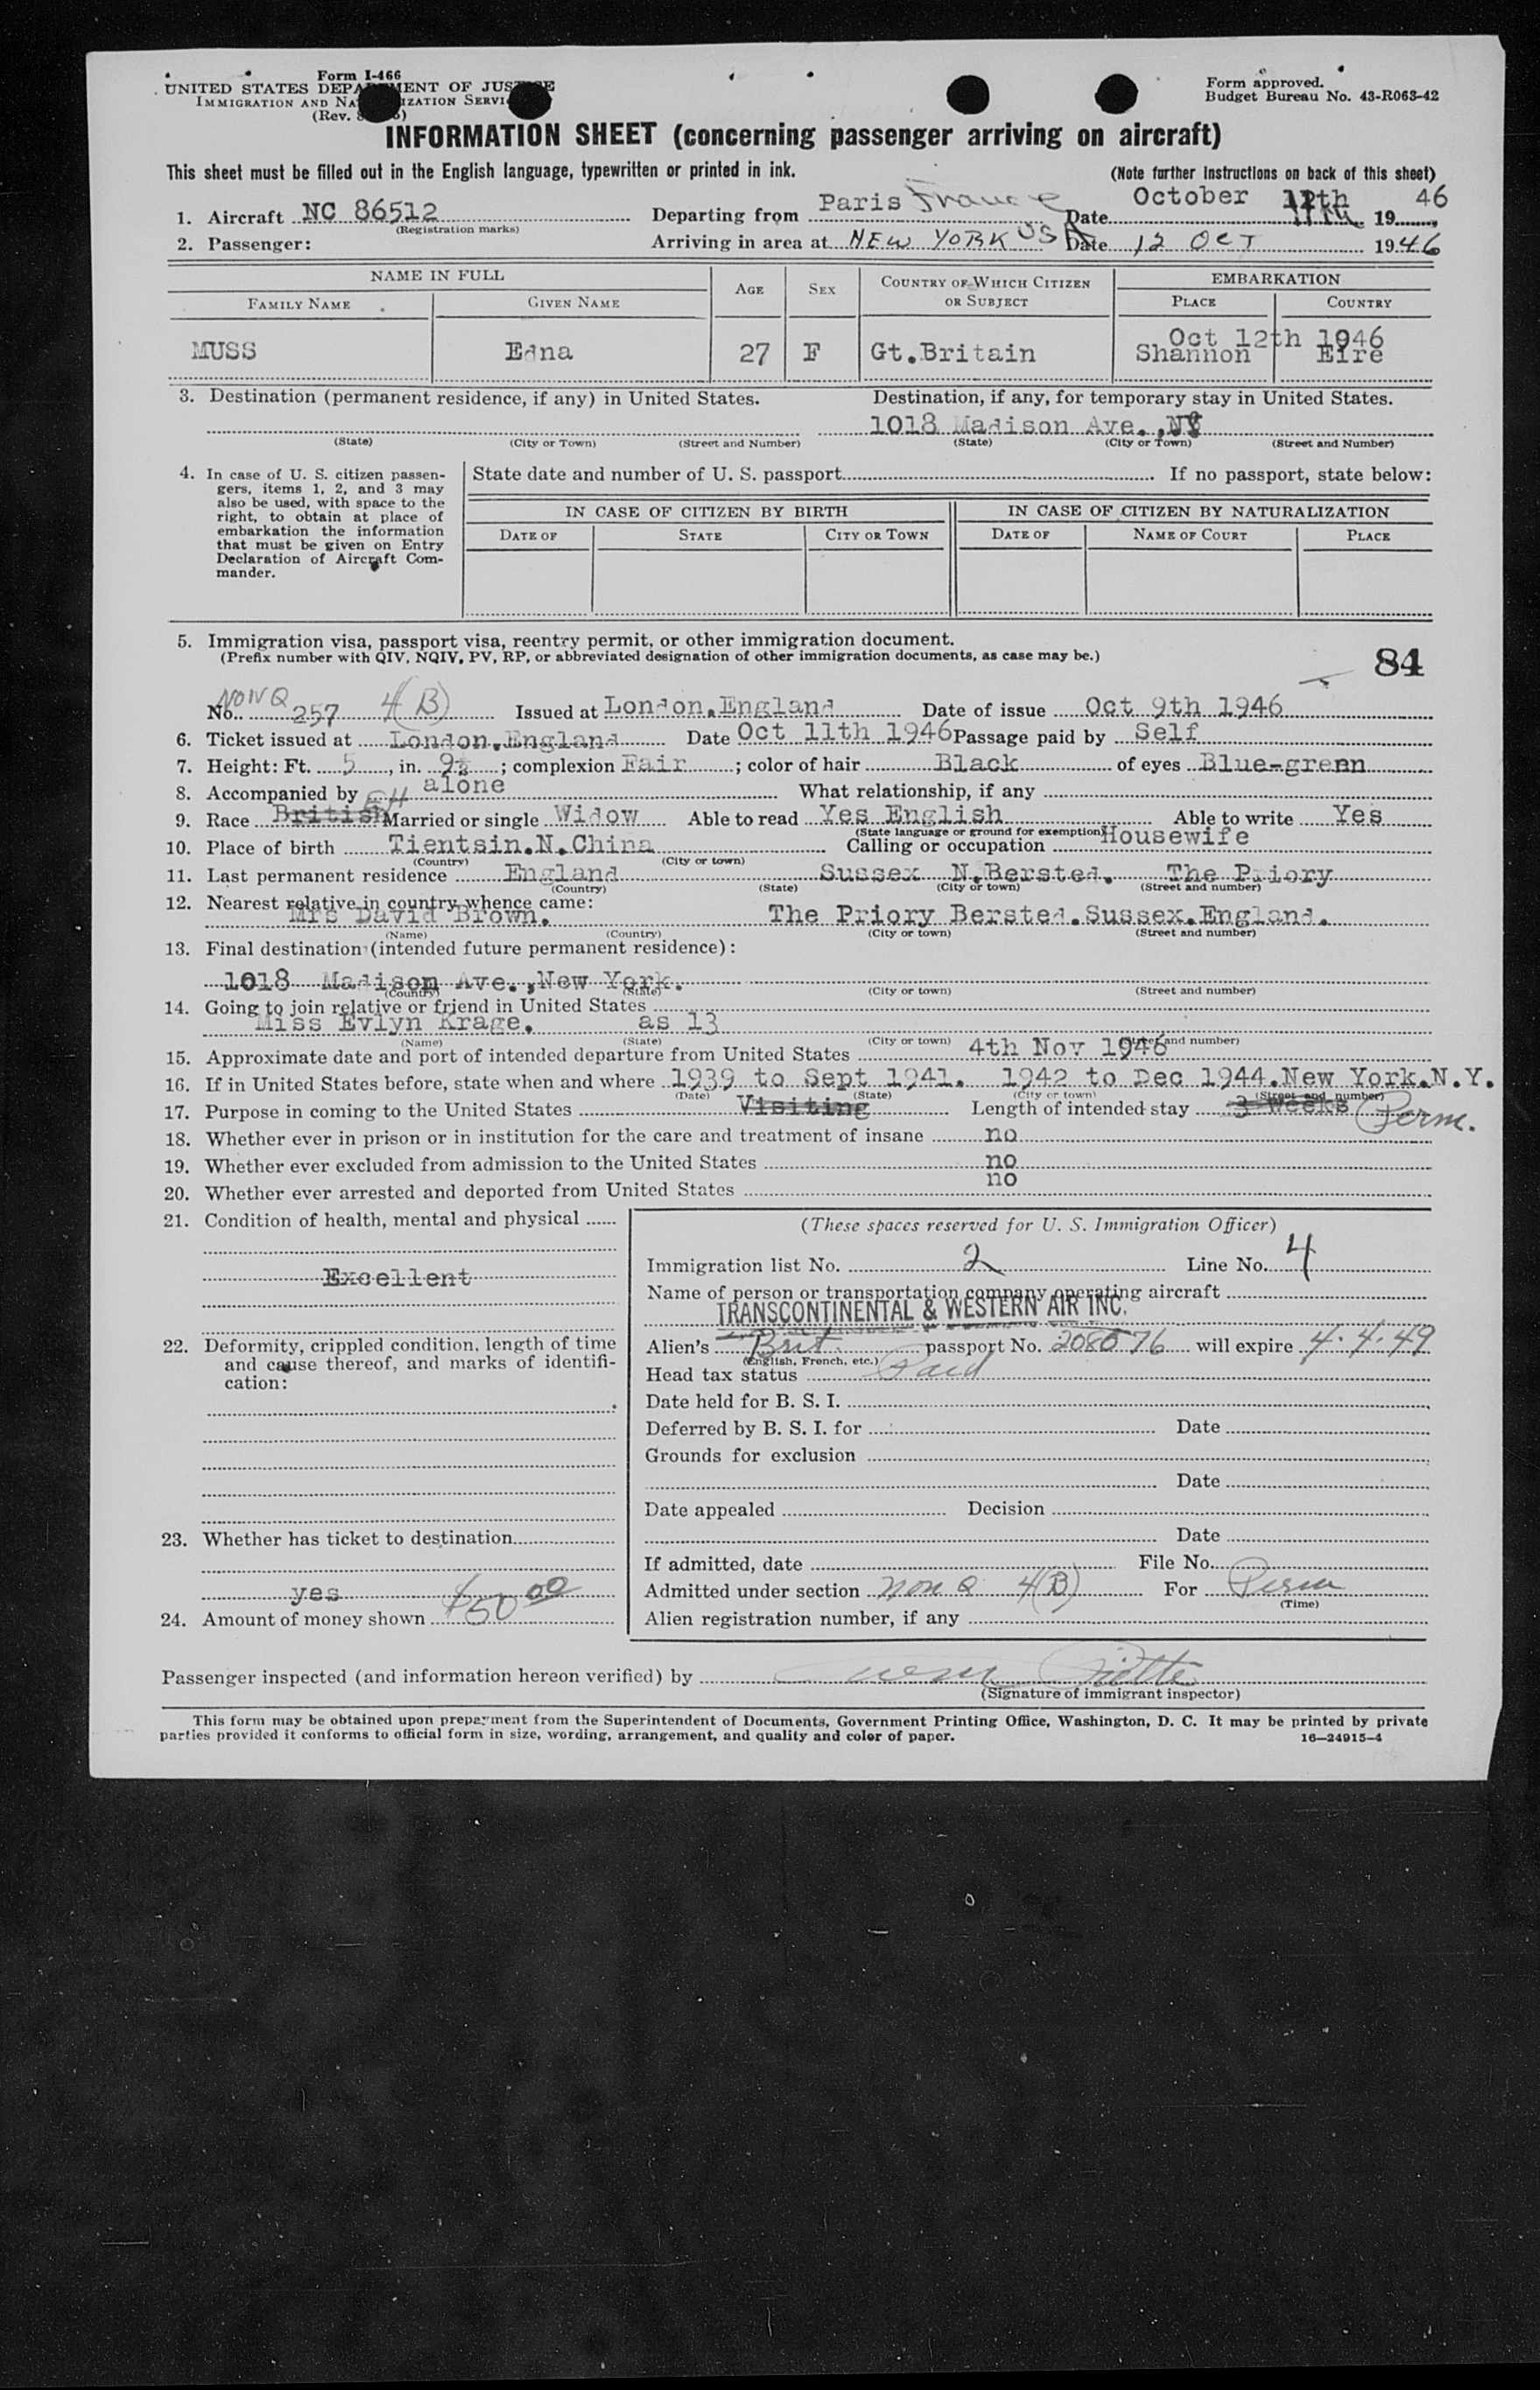 Form I-466
UNITED STATES DEPARTMENT OF JUSTICE
IMMIGRATION AND NATURALIZATION SERVICE
(Rev.
Form approved.
Budget Bureau No. 43-R063-42
INFORMATION SHEET (concerning passenger arriving on aircraft)
This sheet must be filled out in the English language, typewritten or printed in ink. (Note further instructions on back of this sheet)
1. Aircraft NC 86512 Departing from Paris France Date October 12th 11th 1946
(Registration marks)
2. Passenger: Arriving in area at NEW YORK USA Date 12 OCT 1946
NAME IN FULL AGE SEX COUNTRY OF WHICH CITIZEN OR SUBJECT EMBARKATION
FAMILY NAME GIVEN NAME PLACE COUNTRY
Oct 12th 1946
MUSS Edna 27 F Gt.Britain Shannon Eire
3. Destination (permanent residence, if any) in United States. Destination, if any, for temporary stay in United States.
1018 Madison Ave.,NY
(State) (City or Town) (Street and Number) (State) (City or Town) (Street and Number)
4. In case of U. S. citizen passen-
gers, items 1, 2, and 3 may
also be used, with space to the
right, to obtain at place of
embarkation the information
that must be given on Entry
Declaration of Aircraft Com-
mander.
State date and number of U. S. passport If no passport, state below:
IN CASE OF CITIZEN BY BIRTH IN CASE OF CITIZEN BY NATURALIZATION
DATE OF STATE CITY OR TOWN DATE OF NAME OF COURT PLACE
5. Immigration visa, passport visa, reentry permit, or other immigration document.
(Prefix number with QIV, NQIV, PV, RP, or abbreviated designation of other immigration documents, as case may be.)
84
NON Q
No. 257 4(B) Issued at London.England Date of issue Oct 9th 1946
6. Ticket issued at London.England Date Oct 11th 1946 Passage paid by Self
7. Height: Ft. 5, in. 9½; complexion Fair; color of hair Black of eyes Blue-grenn
8. Accompanied by alone What relationship, if any
9. Race British Married or single Widow Able to read Yes English Able to write Yes
(State language or ground for exemption)
10. Place of birth Tientsin.N.China Calling or occupation Housewife
(Country) (City or town)
11. Last permanent residence England Sussex N.Bersted. The Priory
(Country) (State) (City or town) (Street and number)
12. Nearest relative in country whence came:
Mrs David Brown. The Priory Bersted.Sussex.England.
(Name) (Country) (City or town) (Street and number)
13. Final destination (intended future permanent residence):
1018 Madison Ave.,New York.
(Country) (State) (City or town) (Street and number)
14. Going to join relative or friend in United States
Miss Evlyn Krage. as 13
(Name) (State) (City or town) (Street and number)
15. Approximate date and port of intended departure from United States 4th Nov 1946
16. If in United States before, state when and where 1939 to Sept 1941. 1942 to Dec 1944.New York.N.Y.
(Date) (State) (City or town) (Street and number)
17. Purpose in coming to the United States Visiting Length of intended stay 3 weeks Perm.
18. Whether ever in prison or in institution for the care and treatment of insane no
19. Whether ever excluded from admission to the United States no
20. Whether ever arrested and deported from United States no
21. Condition of health, mental and physical
Excellent
22. Deformity, crippled condition, length of time
and cause thereof, and marks of identifi-
cation:
23. Whether has ticket to destination
yes
24. Amount of money shown $50 00
(These spaces reserved for U. S. Immigration Officer)
Immigration list No. 2 Line No. 4
Name of person or transportation company operating aircraft
TRANSCONTINENTAL & WESTERN AIR INC.
Alien's Brit. passport No. 208576 will expire 4.4.49
(English, French, etc.)
Head tax status Paid
Date held for B. S. I.
Deferred by B. S. I. for Date
Grounds for exclusion
Date
Date appealed Decision
Date
If admitted, date File No.
Admitted under section Non Q 4(B) For Perm
(Time)
Alien registration number, if any
Passenger inspected (and information hereon verified) by
(Signature of immigrant inspector)
This form may be obtained upon prepayment from the Superintendent of Documents, Government Printing Office, Washington, D. C. It may be printed by private
parties provided it conforms to official form in size, wording, arrangement, and quality and color of paper. 16—24915-4